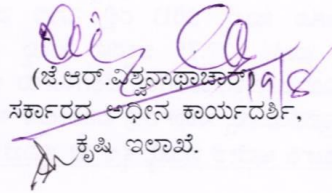 (ಜೆ.ಆರ್.ವಿಶ್ವನಾಥಾಚಾರ್)
19/8
ಸರ್ಕಾರದ ಅಧೀನ ಕಾರ್ಯದರ್ಶಿ,
ಕೃಷಿ ಇಲಾಖೆ.